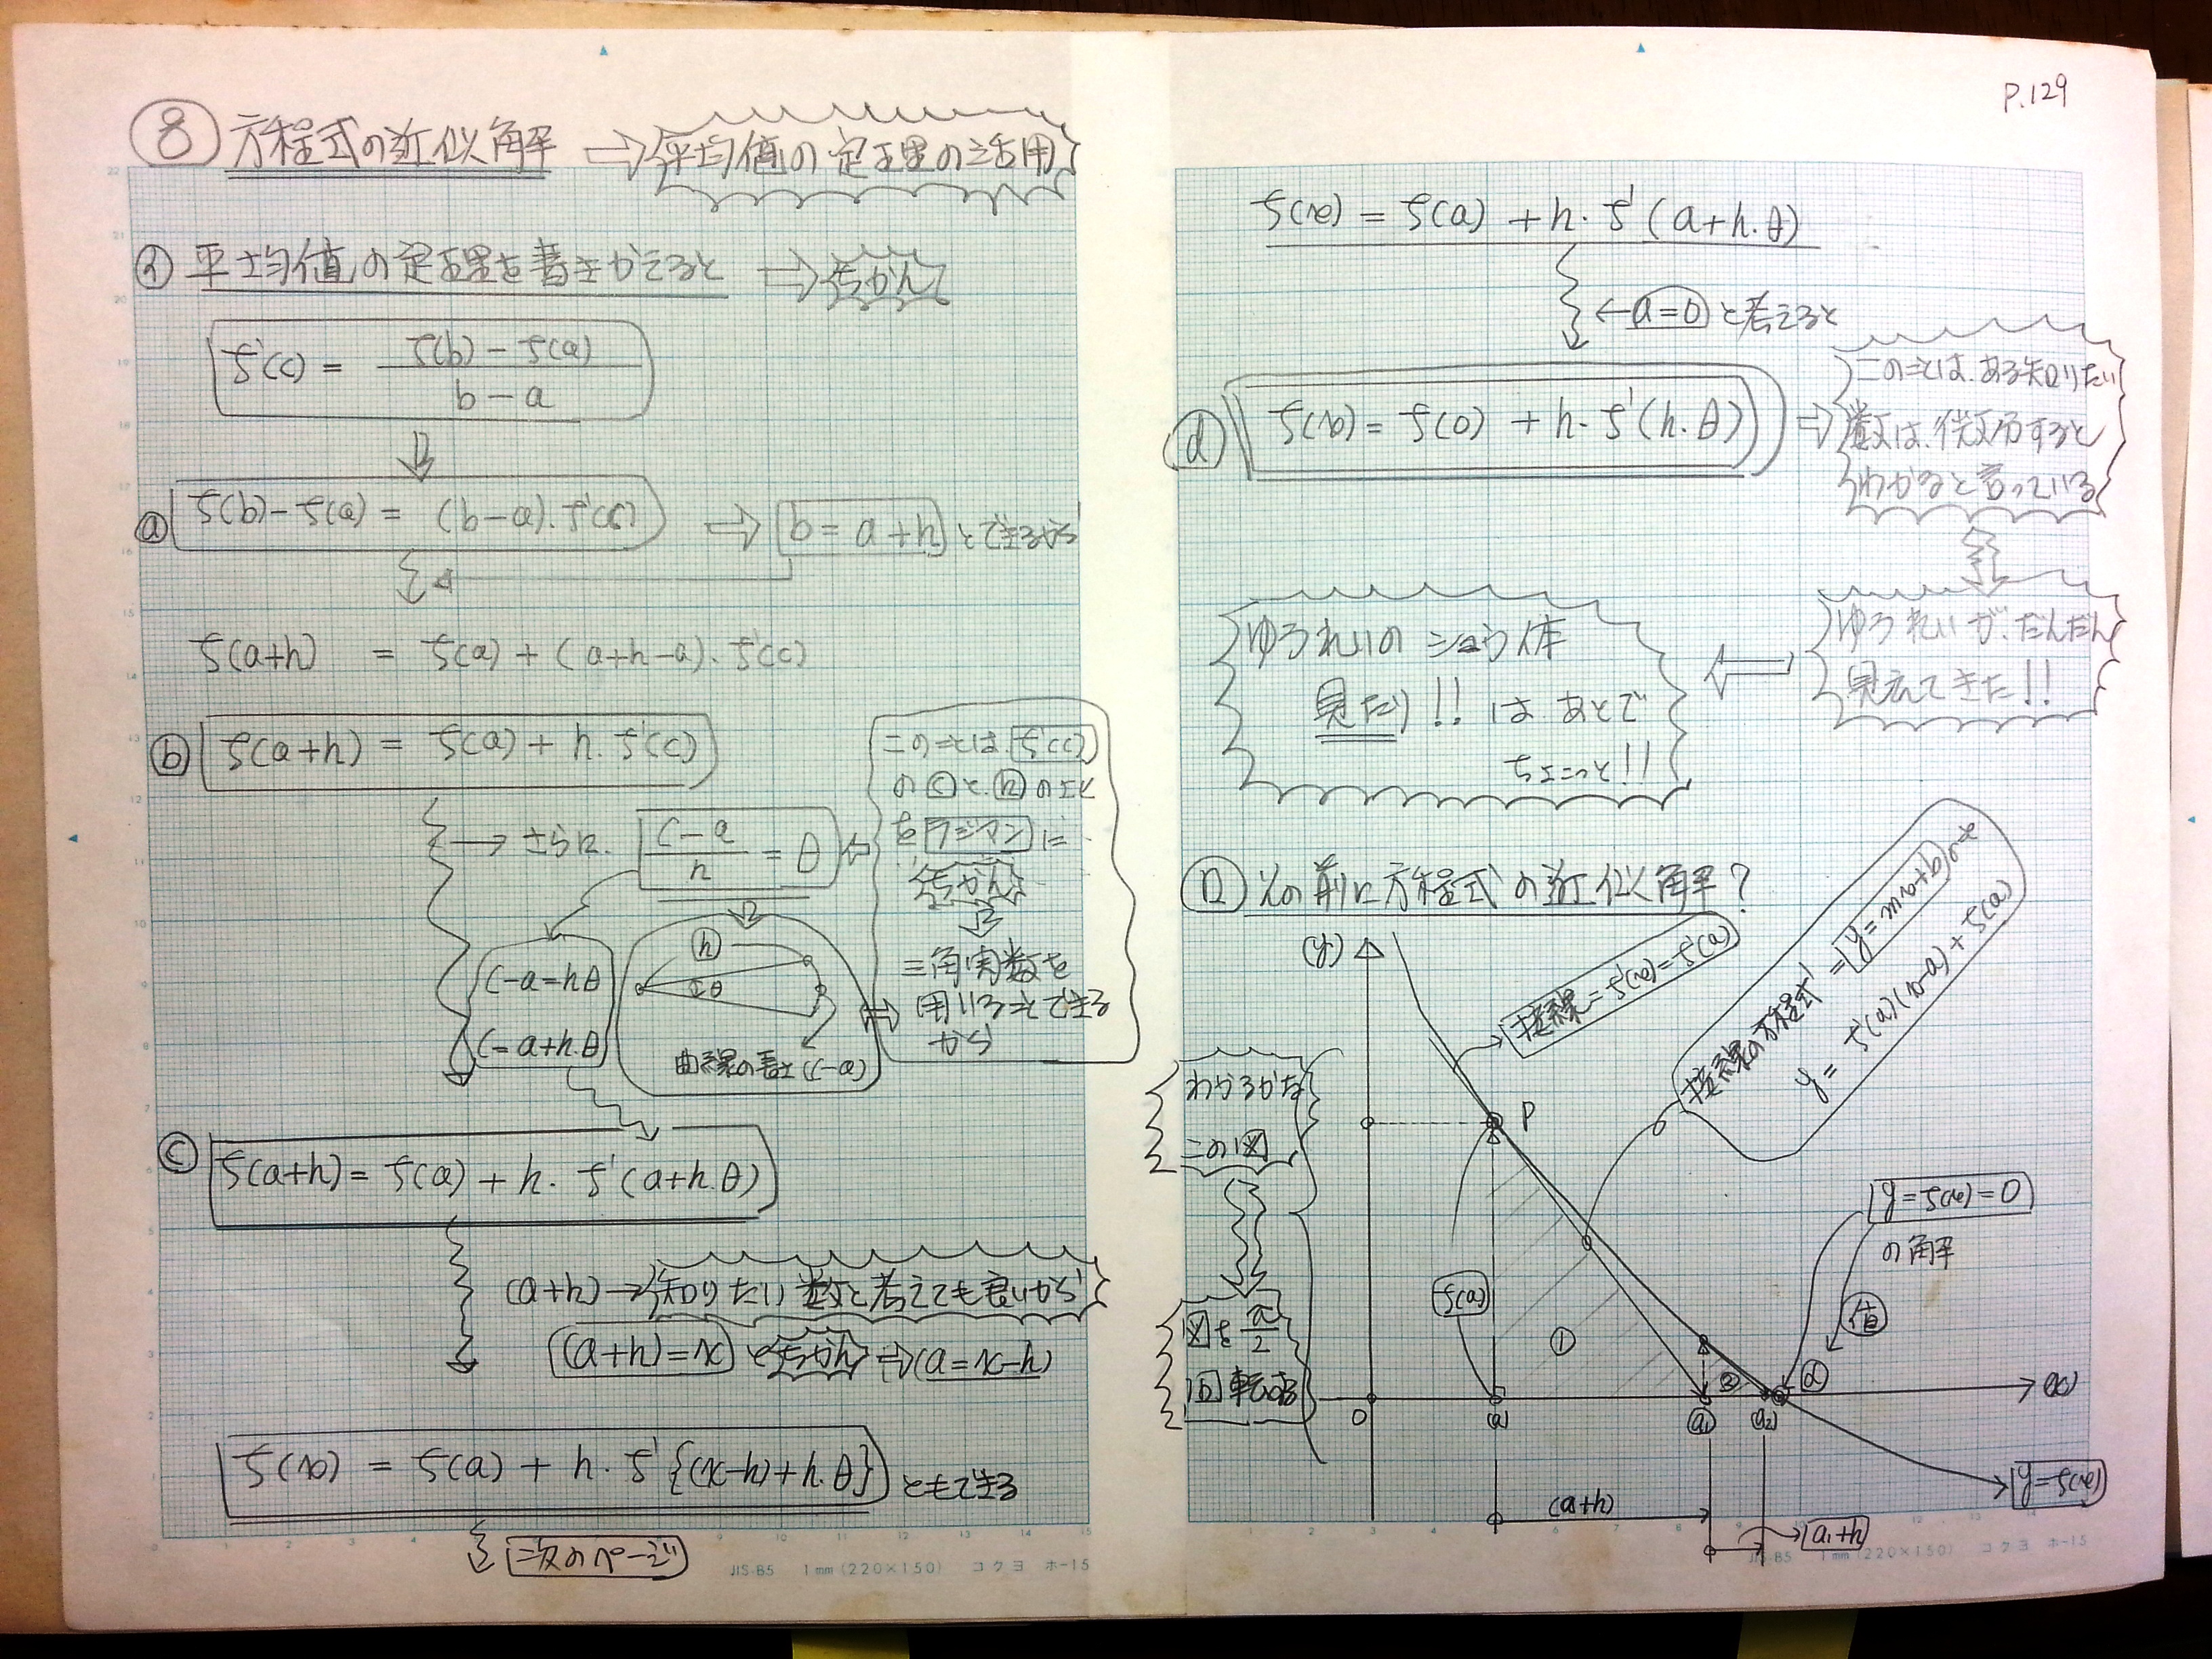 ⑧ 方程式の近似解 ⇨ 平均値の定理の活用
㋑ 平均値の定理を書きかえると ⇨ ちかん
f'(c) = f(b) - f(a) / b - a
ⓐ f(b) - f(a) = (b-a)・f'(c) ⇨ b = a + h とできるから
f(a+h) = f(a) + (a+h-a)・f'(c)
ⓑ f(a+h) = f(a) + h・f'(c)
→ さらに、 c-a / h = θ
このことは、f'(c)
の ⓒ と、ⓗ の比
を ラジアン に
ちかん
三角実数を
用いることできる
から
c-a = hθ
c = a+h・θ
ⓗ
θ
曲線の長さ (c-a)
ⓒ f(a+h) = f(a) + h・f'(a+h・θ)
(a+h) → 知りたい数と考えても良いから
(a+h) = x とちかん ⇨ (a = x-h)
f(x) = f(a) + h・f'{(x-h)+h・θ} ともできる
次のページ
JIS-B5 1mm (220×150) コクヨ ホ-15
P.129
f(x) = f(a) + h・f'(a+h・θ)
← a=0 と考えると
ⓓ f(x) = f(0) + h・f'(h・θ)
⇨ このことは、ある知りたい
数は、微分すると
わかると言っている
ゆうれいが、だんだん
見えてきた!!
ゆうれいのショウ体
見たり!! は あとで
ちょこっと!!
㋺ その前に方程式の近似解?
(y)
接線 = f'(x) = f'(a)
接線の方程式 = y = mx+b
y = f'(a)(x-a) + f(a)
わかるかな
この図
図を π/2
回転
P
f(a)
①
②
y = f(x) = 0
の解
値
α
(x)
0
(a)
(a₁)
(a₂)
y = f(x)
(a+h)
a₁+h
JIS-B5 1mm (220×150) コクヨ ホ-15